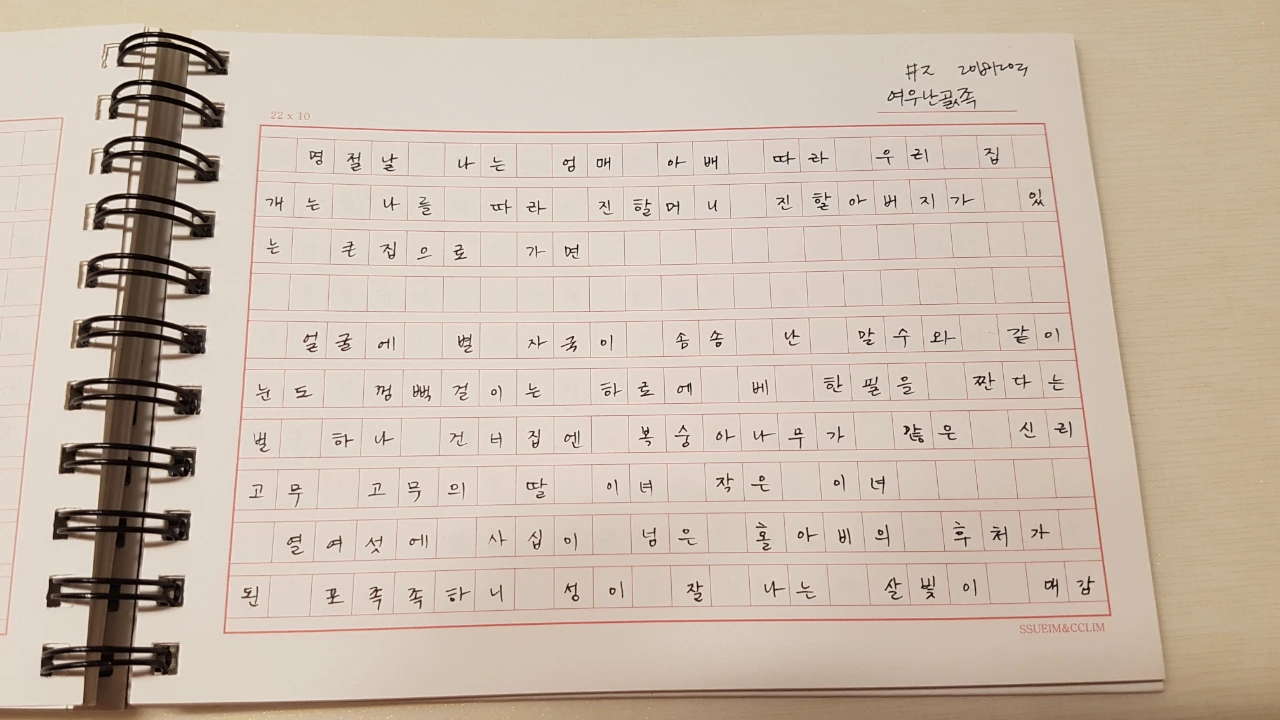 #2 20181029
여우난골족
22 x 10
명절날 나는 엄매 아배 따라 우리 집
개는 나를 따라 진할머니 진할아버지가 있
는 큰집으로 가면
얼굴에 별 자국이 솜솜 난 말수와 같이
눈도 껌뻑걸이는 하로에 베 한필을 짠다는
벌 하나 건너집엔 복숭아나무가 많은 신리
고무 고무의 딸 이녀 작은 이녀
열여섯에 사십이 넘은 홀아비의 후처가
된 포족족하니 성이 잘 나는 살빛이 매감
SSUEIM&CCLIM